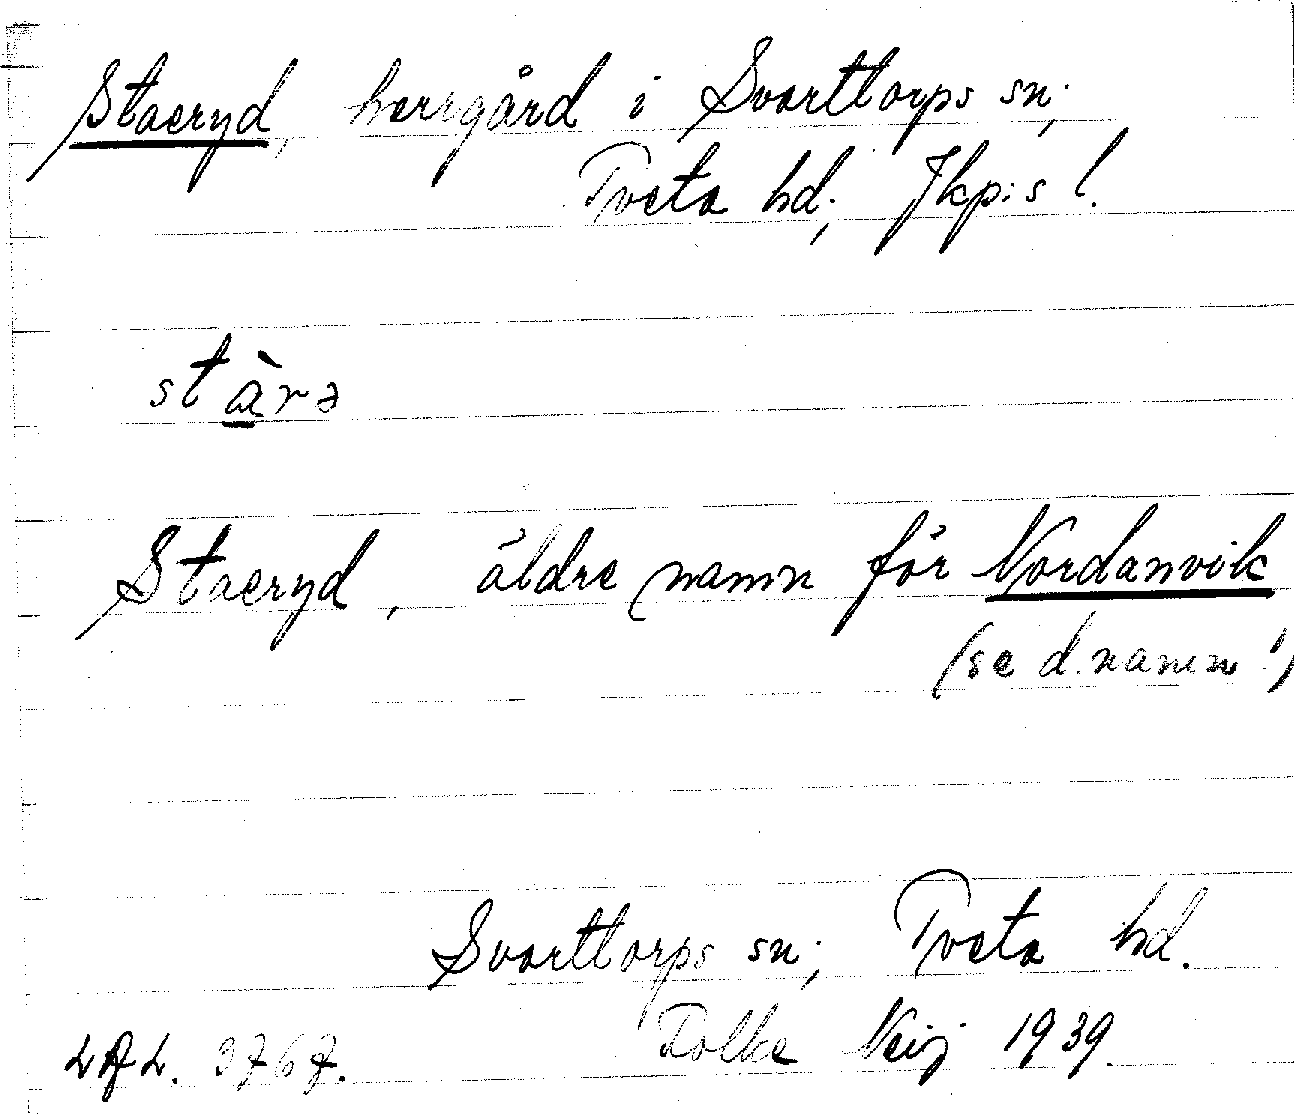 Staeryd, herrgård i Svarttorps sn;
Tveta hd; Jkp:s l.
stàrə
Staeryd, äldre namn för Nordanvik
(se d. namn!)
Svarttorps sn; Tveta hd.
LAL. 3767. Folke Neij 1939.